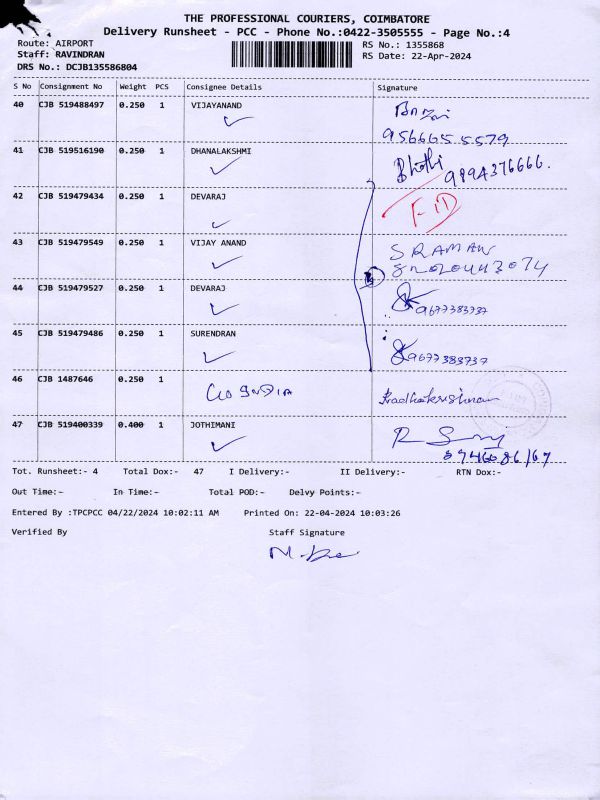 THE PROFESSIONAL COURIERS, COIMBATORE
Delivery Runsheet - PCC - Phone No.:0422-3505555 - Page No.:4
Route: AIRPORT RS No.: 1355868
Staff: RAVINDRAN RS Date: 22-Apr-2024
DRS No.: DCJB135586804
S No Consignment No Weight PCS Consignee Details Signature
40 CJB 519488497 0.250 1 VIJAYANAND
9566655579
41 CJB 519516190 0.250 1 DHANALAKSHMI
9894376666.
42 CJB 519479434 0.250 1 DEVARAJ
43 CJB 519479549 0.250 1 VIJAY ANAND SRAMAN
44 CJB 519479527 0.250 1 DEVARAJ
9677383737
45 CJB 519479486 0.250 1 SURENDRAN
9677383737
46 CJB 1487646 0.250 1 Radhakrishnan
47 CJB 519400339 0.400 1 JOTHIMANI
Tot. Runsheet:- 4 Total Dox:- 47 I Delivery:- II Delivery:- RTN Dox:-
Out Time:- In Time:- Total POD:- Delvy Points:-
Entered By :TPCPCC 04/22/2024 10:02:11 AM Printed On: 22-04-2024 10:03:26
Verified By Staff Signature